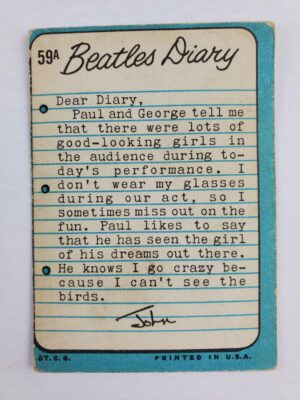 59A Beatles Diary
Dear Diary,
Paul and George tell me
that there were lots of
good-looking girls in
the audience during to-
day's performance. I
don't wear my glasses
during our act, so I
sometimes miss out on the
fun. Paul likes to say
that he has seen the girl
of his dreams out there.
He knows I go crazy be-
cause I can't see the
birds.
John
©T.C.G. PRINTED IN U.S.A.